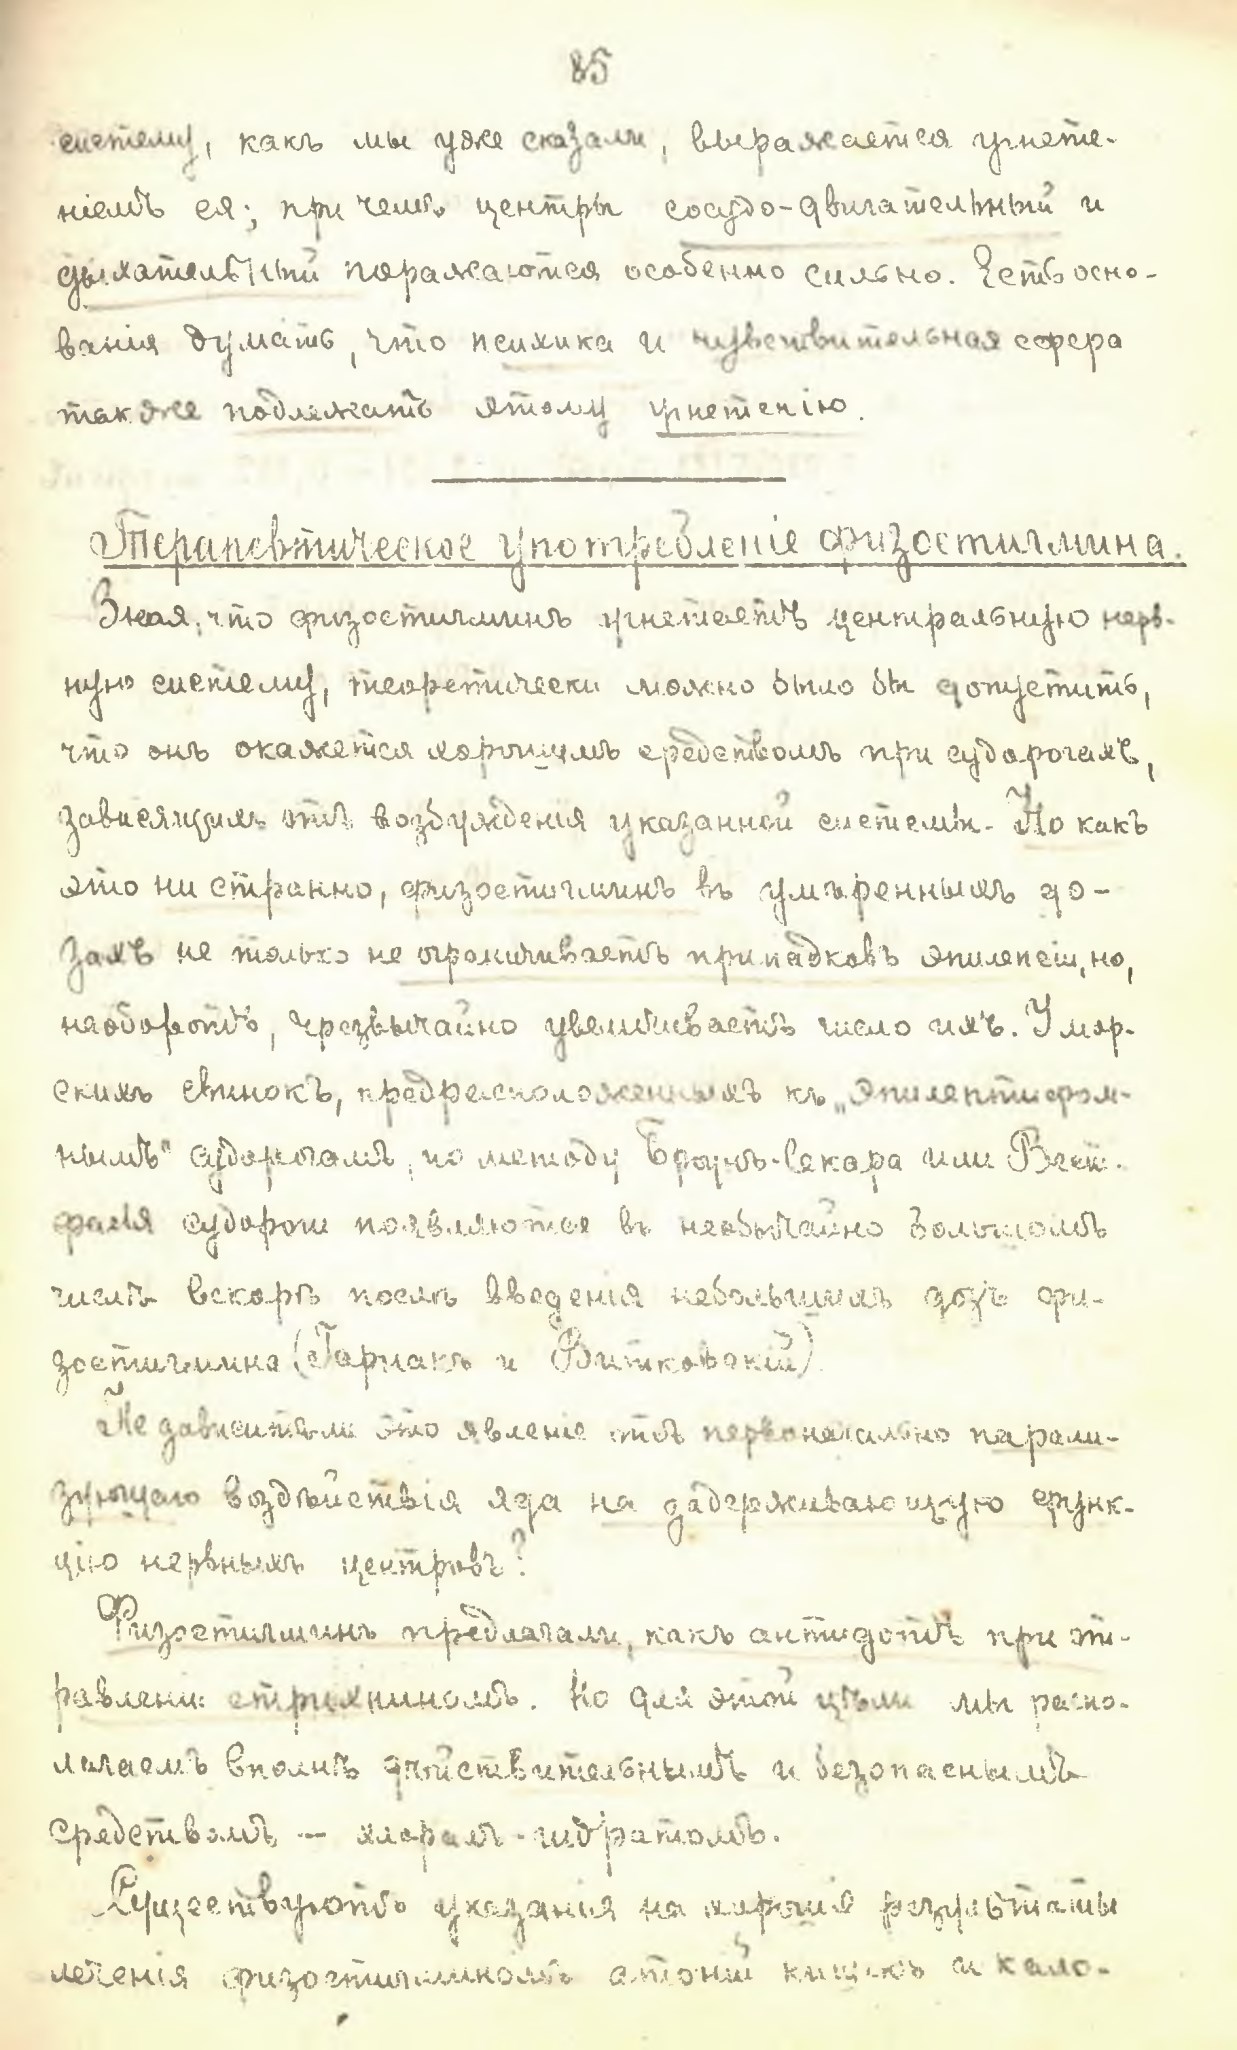 85
систему, какъ мы уже сказали, выражается угнете-
ніемъ ея; при чемъ центры сосудо-двигательный и
дыхательный поражаются особенно сильно. Есть осно-
ванія думать, что психика и чувствительная сфера
также подлежатъ этому угнетенію.
Терапевтическое употребленіе физостигмина.
Зная, что физостигминъ угнетаетъ центральную нерв-
ную систему, теоретически можно было бы допустить,
что онъ окажется хорошимъ средствомъ при судорогахъ,
зависящихъ отъ возбужденія указанной системы. Но какъ
это ни странно, физостигминъ въ умѣренныхъ до-
захъ не только не ограничиваетъ припадковъ эпилепсіи, но,
наоборотъ, чрезвычайно увеличиваетъ число ихъ. У мор-
скихъ свинокъ, предрасположенныхъ къ „эпилептиформ-
нымъ" судорогамъ, по методу Броунъ-Секара или Вест-
фаля судороги появляются въ необычайно большомъ
числѣ вскорѣ послѣ введенія небольшихъ дозъ фи-
зостигмина (Гарнакъ и Витковскій)
Не зависитъ ли это явленіе отъ первоначально парали-
зующаго воздѣйствія яда на задерживающую функ-
цію нервныхъ центровъ?
Физостигминъ предлагали, какъ антидотъ при от-
равленіи стрихниномъ. Но для этой цѣли мы распо-
лагаемъ вполнѣ дѣйствительнымъ и безопаснымъ
средствомъ — хлоралъ-гидратомъ.
Существуютъ указанія на хорошіе результаты
леченія физостигминомъ атоній кишекъ и кало-